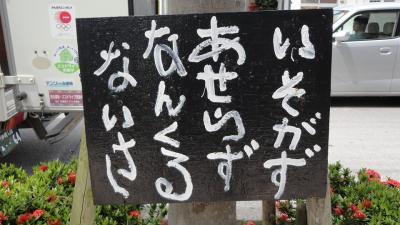 いそがず
あせらず
なんくる
ないさ